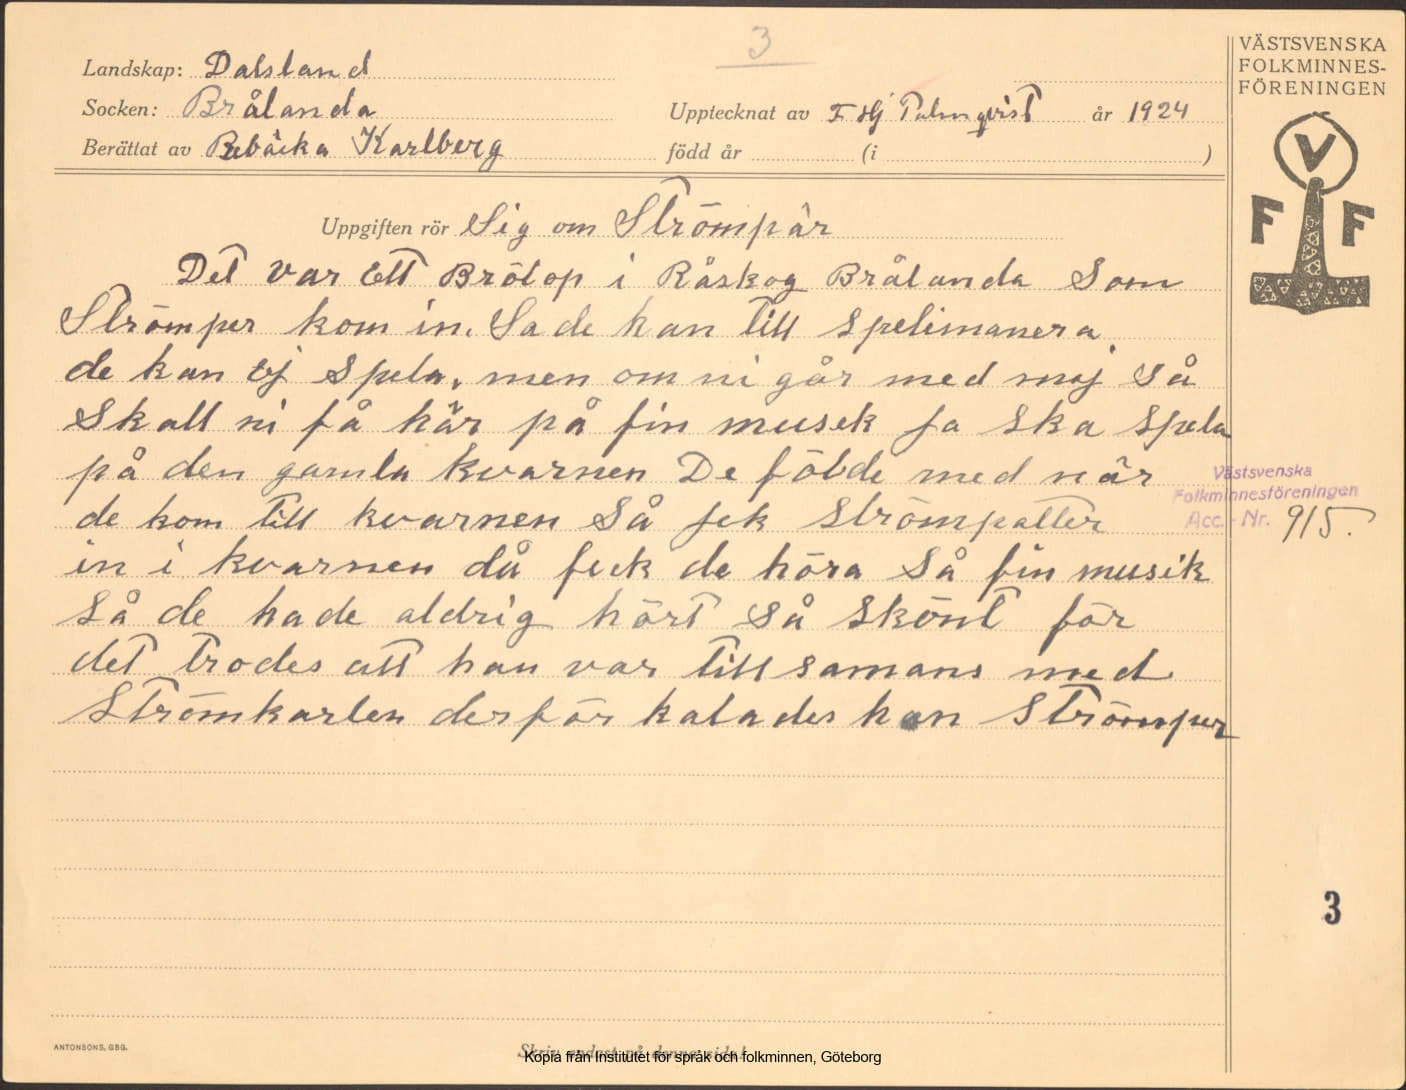 3
VÄSTSVENSKA
FOLKMINNES-
FÖRENINGEN
Landskap: Dalsland
Socken: Brålanda
Upptecknat av F Hj Palmqvist år 1924
Berättat av Rebäcka Karlberg
född år (i )
V
F F
Uppgiften rör Sig om Strömpär
Det var Ett Brölop i Råskog Brålanda Som
Strömper kom in. Sade han till spelimanera
de kan Ej Spela, men om ni går med maj så
Skall ni få hår på fin musek ja ska spela
på den gamla kvarnen De földe med når
de kom till kvarnen Så jek Strömpatter
in i kvarnen då feck de höra Så fin musik
Så de hade aldrig hört så skönt för
det trodes att han var tillsamans med
Strömkarlen derför kalades han Strömper
Västsvenska
Folkminnesföreningen
Acc.-Nr. 915.
3
ANTONSONS, GBG.
Skriv endast på denna sida!
Kopia från Institutet för språk och folkminnen, Göteborg